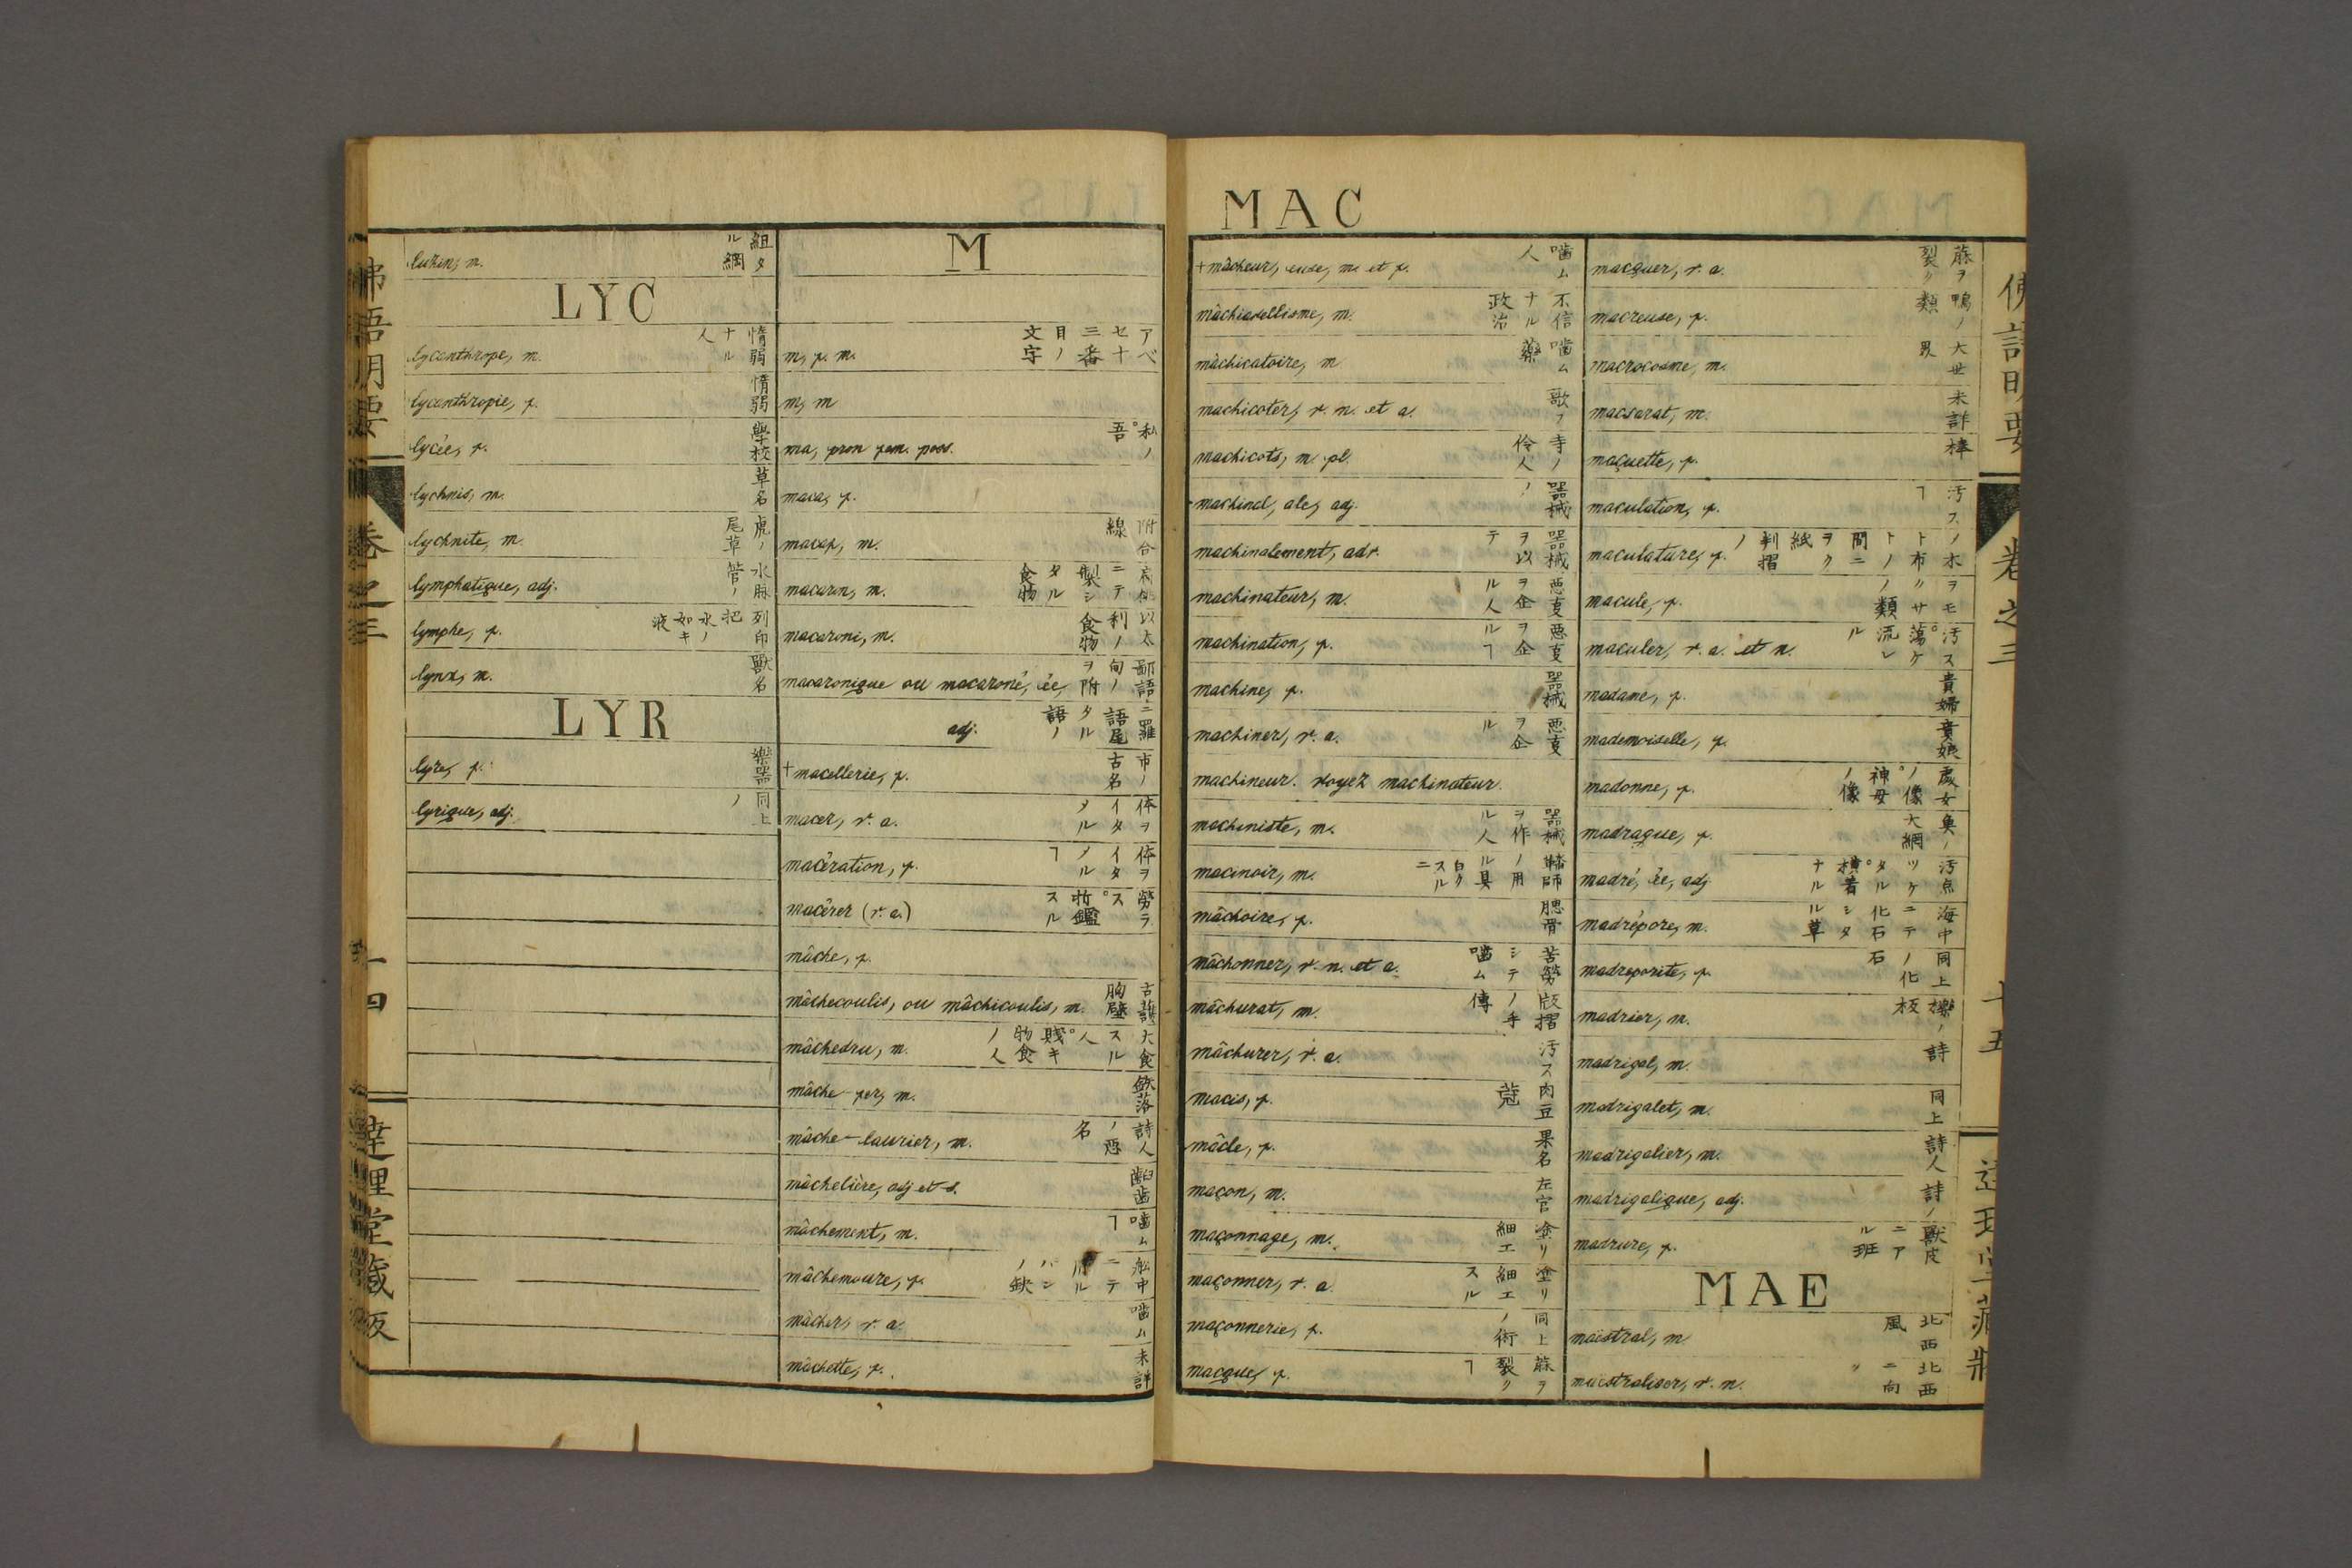 luzin, m. 組タル綱
LYC
lycanthrope, m. 惰弱ナル人
lycanthropie, f. 惰弱
lycée, f. 學校
lychnis, m. 草名
lychnite, m. 虎ノ尾草
lymphatique, adj. 水脉管ノ
lymphe, f. 水ノ如キ液
lynx, m. 獸名
LYR
lyre, f. 樂器
lyrique, adj. 同上ノ
M
m, f. m. アベセ十三番目ノ文字
m, m
ma, pron fem. poss. 私ノ。吾
maca, f.
macaf, m. 附合線
macaron, m. ニテ製シタル食物
macaroni, m. 以太利ノ食物
macaronique ou macaroné, ée, adj. 鄙語ニ羅甸ノ語尾ヲ附タル語ノ
+macellerie, f. 市ノ古名
macer, v. a. 体ヲイタメル
macération, f. 体ヲイタメルヿ
macérer (v. a.)
mâche, f.
mâchecoulis, ou mâchicoulis, m. 古護胸壁
mâchedru, m. 大食スル人。賤キ物食ノ人
mâche-fer, m. 鉄落
mâche-laurier, m. 詩人ノ惡名
mâchelière, adj et s. 齒
mâchement, m. 嚙ムヿ
mâchemoure, f. 船中ニテ用ルパンノ鈌
mâcher, v. a. 嚙ム
mâchette, f. 未詳
MAC
+mâcheur, euse, m. et f. 嚙ム人
mâchiavellisme, m. 不信ナル政治
mâchicatoire, m 嚙ム藥
machicoter, v. n. et a. 歌フ
machicots, m. pl. 寺ノ伶人
machinal, ale, adj. 器械ノ
machinalement, adv. 器械ヲ以テ
machinateur, m. 惡夏ヲ企ル人
machination, f. 惡夏ヲ企ルヿ
machine, f. 器械
machiner, v. a. 惡夏ヲ企ル
machineur. voyez machinateur.
machiniste, m. 器械ヲ作ル人
macinoir, m.
mâchoire, f. 腮骨
mâchonner, v. n. et a. 苦勞シテ嚙ム
mâchurat, m. 版摺ノ手傳
mâchurer, v. a. 汚ス
macis, f. 肉豆蔲
mâcle, f. 果名
maçon, m. 左官
maçonnage, m. 塗リ細工
maçonner, v. a. 塗リ細工スル
maçonnerie, f. 同上ノ術
macque, f. 蔴ヲ裂クヿ
macquer, v. a. 蔴ヲ裂ク
macreuse, f. 鴨ノ類
macrocosme, m. 大世界
macsarat, m. 未詳
maçuette, f. 棒
maculation, f. 汚スヿ
maculature, f.
macule, f.
maculer, v. a. et n. 汚ス
madame, f. 貴婦
mademoiselle, f. 貴娘
madonne, f. 處女ノ像。神母ノ像
madrague, f. 魚ノ大網
madré, ée, adj 汚点ツケタル。横着ナル
madrépore, m. 海中ニテ化石シタル草
madreporite, f. 同上ノ化石
madrier, m. 板
madrigal, m. 詩
madrigalet, m. 同上
madrigalier, m. 詩人
madrigalique, adj. 詩ノ
madrure, f. 獸皮ニアル班
MAE
maëstral, m 北西風
maëstraliser, v. n. 北西ニ向
佛語明要
卷之三
十四
達理堂藏板
卷之三
十五